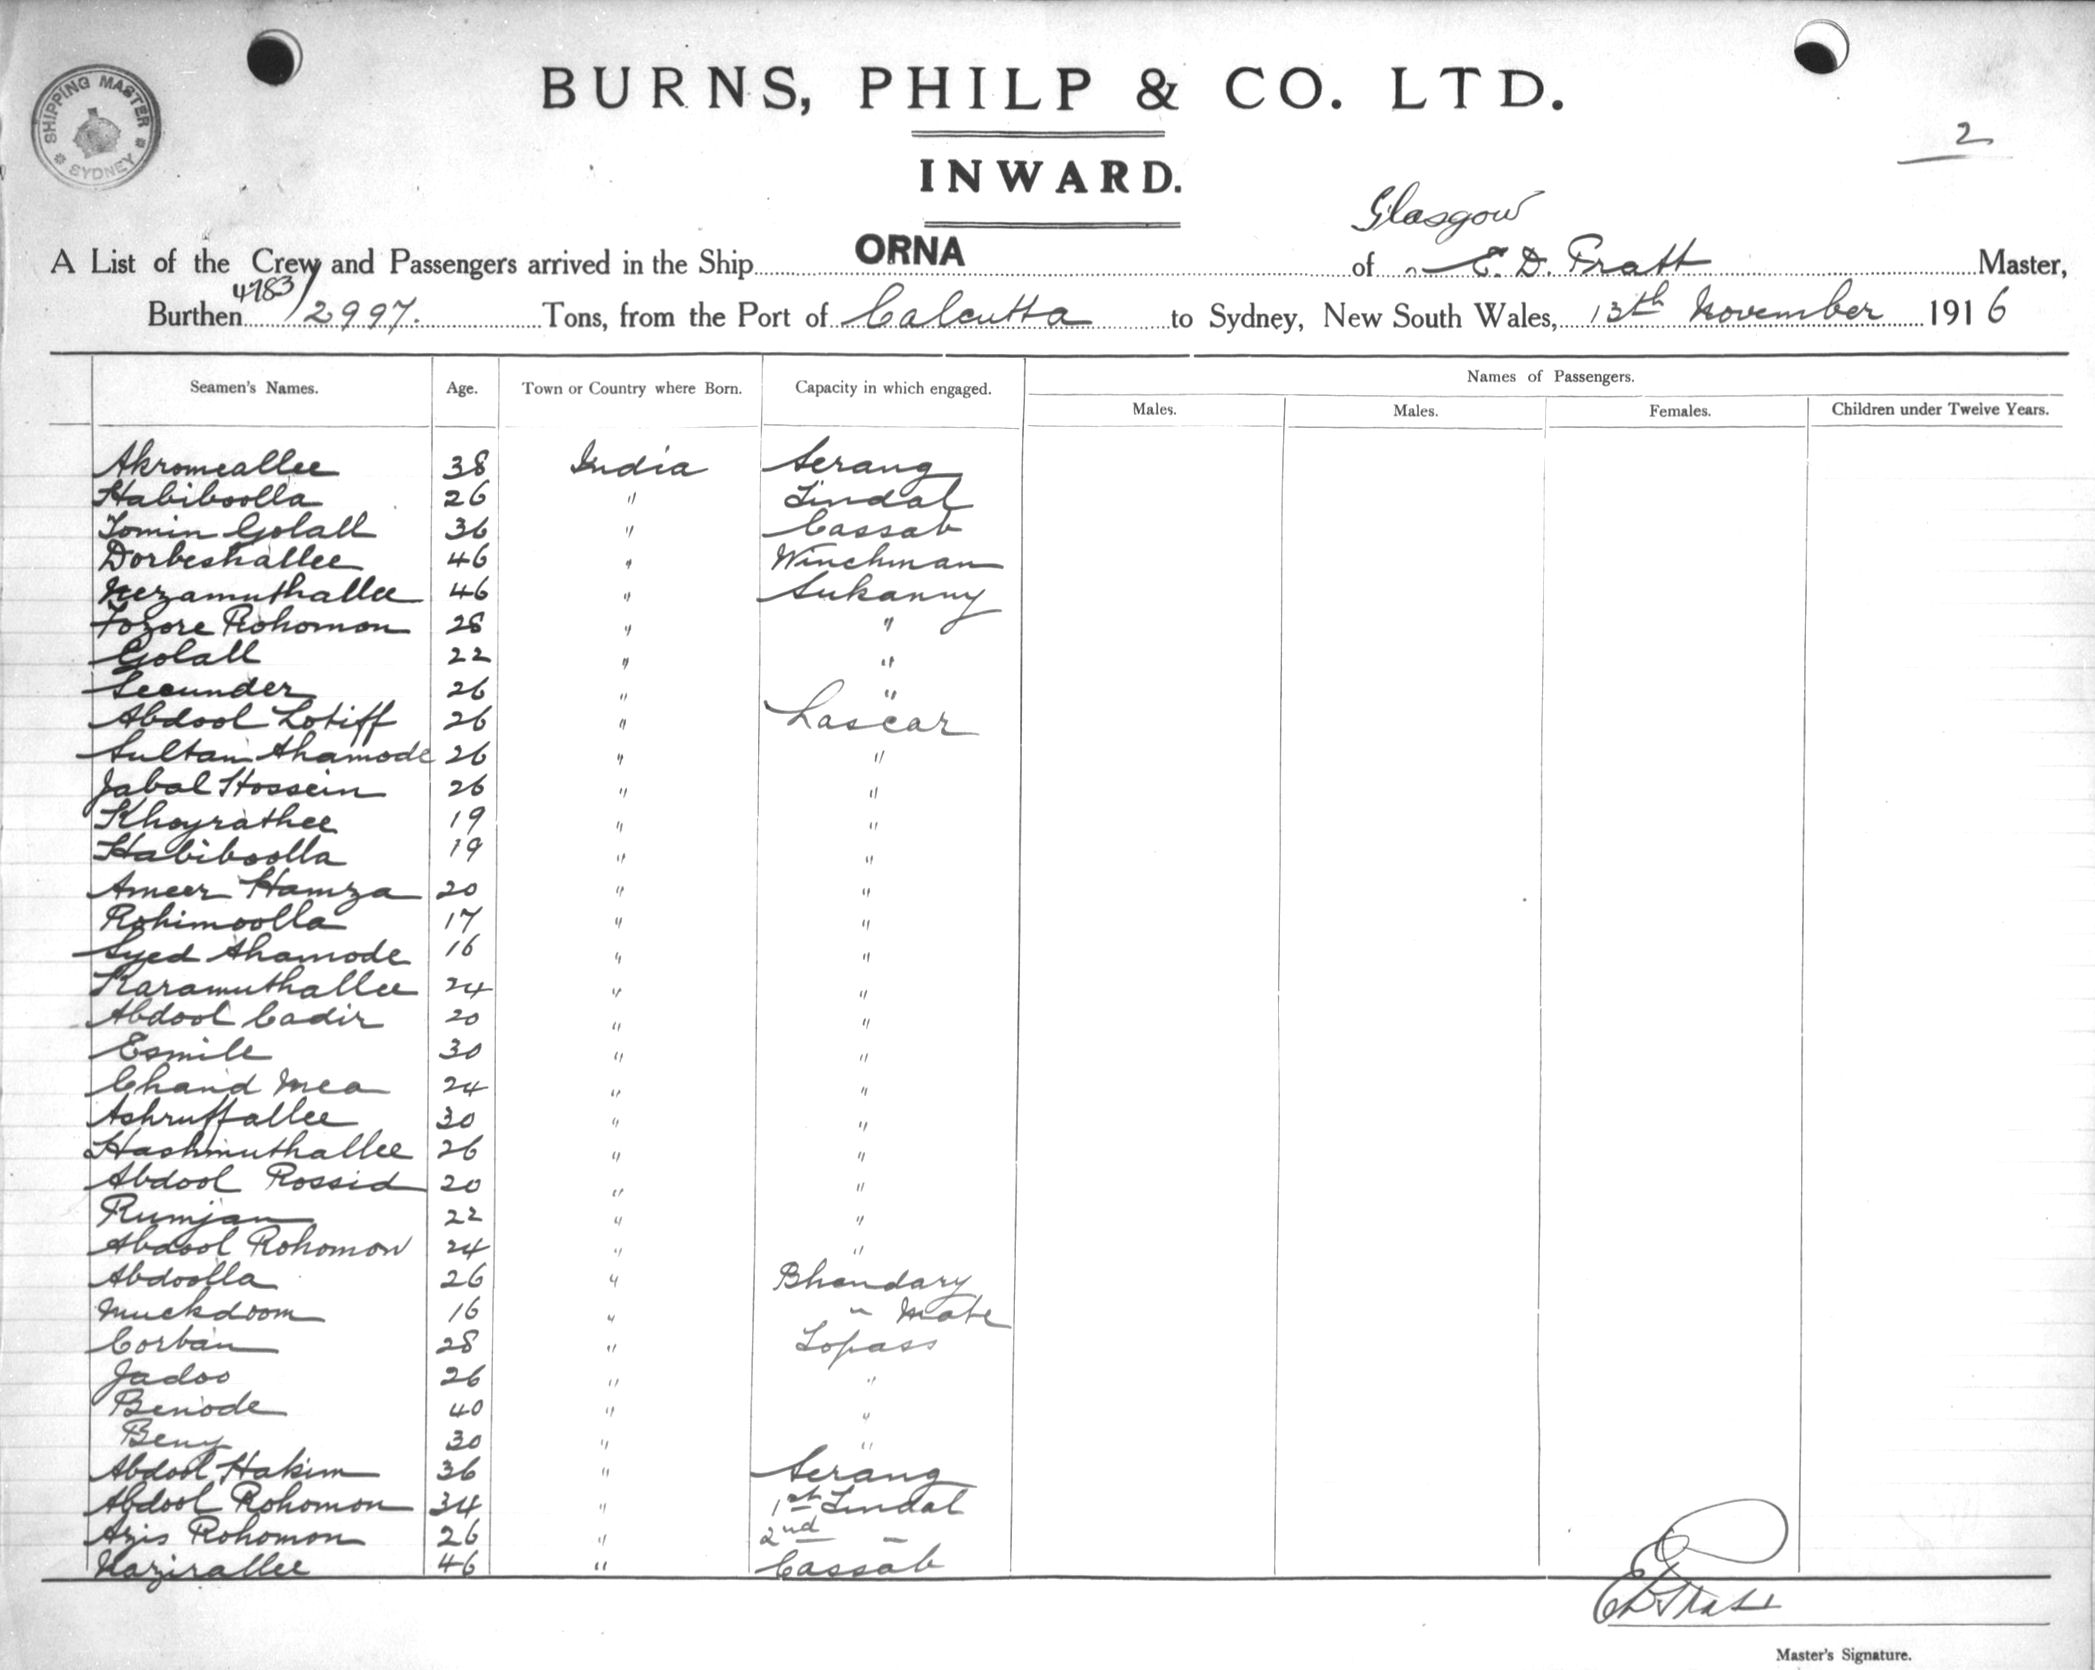 SHIPPING MASTER
SYDNEY
BURNS, PHILP & CO. LTD.
2
INWARD.
Glasgow
A List of the Crew and Passengers arrived in the Ship ORNA of E. D. Pratt Master,
Burthen 4783/2997. Tons, from the Port of Calcutta to Sydney, New South Wales, 13th November 1916
Seamen's Names. Age. Town or Country where Born. Capacity in which engaged. Names of Passengers.
Males. Males. Females. Children under Twelve Years.
Akromeallee 38 India Serang
Habiboolla 26 " Tindal
Tomin Golall 36 " Cassab
Dorbeshallee 46 " Winchman
Nezamuthallee 46 " Sukanny
Fozore Rohomon 28 " "
Golall 22 " "
Secunder 26 " "
Abdool Lotiff 26 " Lascar
Sultan Ahamode 26 " "
Jabal Hossein 26 " "
Khoyrathee 19 " "
Habiboolla 19 " "
Ameer Hamza 20 " "
Rohimoolla 17 " "
Syed Ahamode 16 " "
Karamuthallee 24 " "
Abdool Cadir 20 " "
Esmile 30 " "
Chand Mea 24 " "
Ashruffallee 30 " "
Hashmuthallee 26 " "
Abdool Rossid 20 " "
Rumjan 22 " "
Abdool Rohomon 24 " "
Abdoolla 26 " Bhandary
Muckdoom 16 " " Mate
Corban 28 " Topass
Jadoo 26 " "
Benode 40 " "
Beny 30 " "
Abdool Hakim 36 " Serang
Abdool Rohomon 34 " 1st Tindal
Azis Rohomon 26 " 2nd "
Nazirallee 46 " Cassab
E D Pratt
Master's Signature.